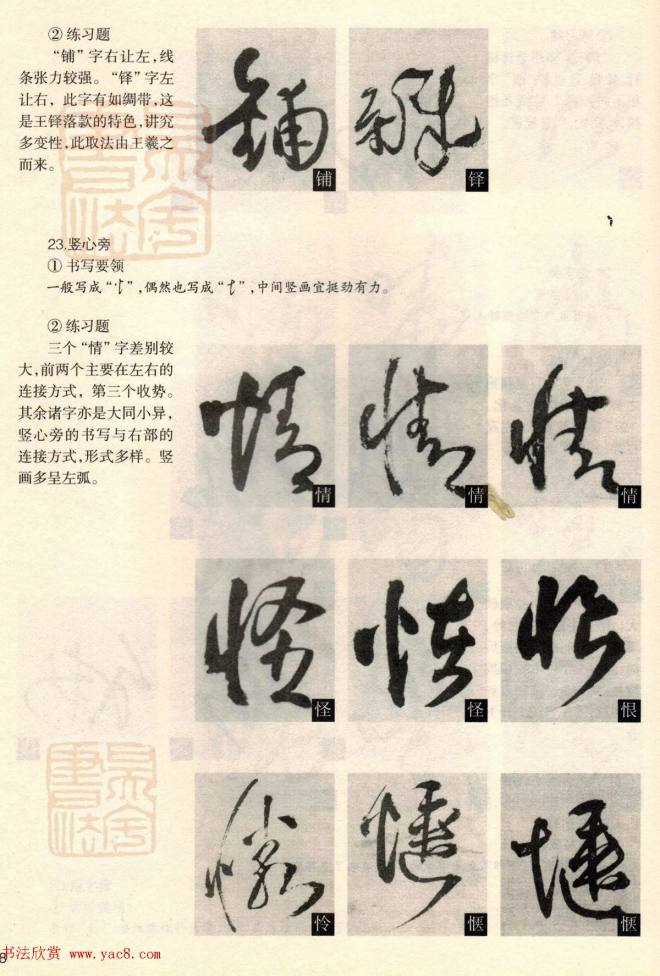 ② 练习题
“铺”字右让左，线
条张力较强。“铎”字左
让右，此字有如绸带，这
是王铎落款的特色，讲究
多变性，此取法由王羲之
而来。
铺
铎
23.竖心旁
① 书写要领
一般写成“忄”，偶然也写成“忄”，中间竖画宜挺劲有力。
② 练习题
三个“情”字差别较
大，前两个主要在左右的
连接方式，第三个收势。
其余诸字亦是大同小异，
竖心旁的书写与右部的
连接方式，形式多样。竖
画多呈左弧。
情
情
情
怪
怪
恨
怜
惬
惬
书法欣赏 www.yac8.com
8